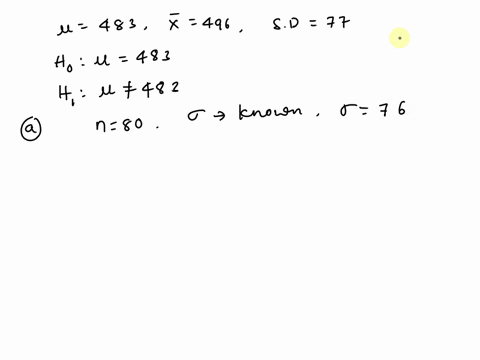 μ = 483, x̄ = 496, S.D = 77
H₀ : μ = 483
H₁ : μ ≠ 482
ⓐ n = 80. σ → known. σ = 76